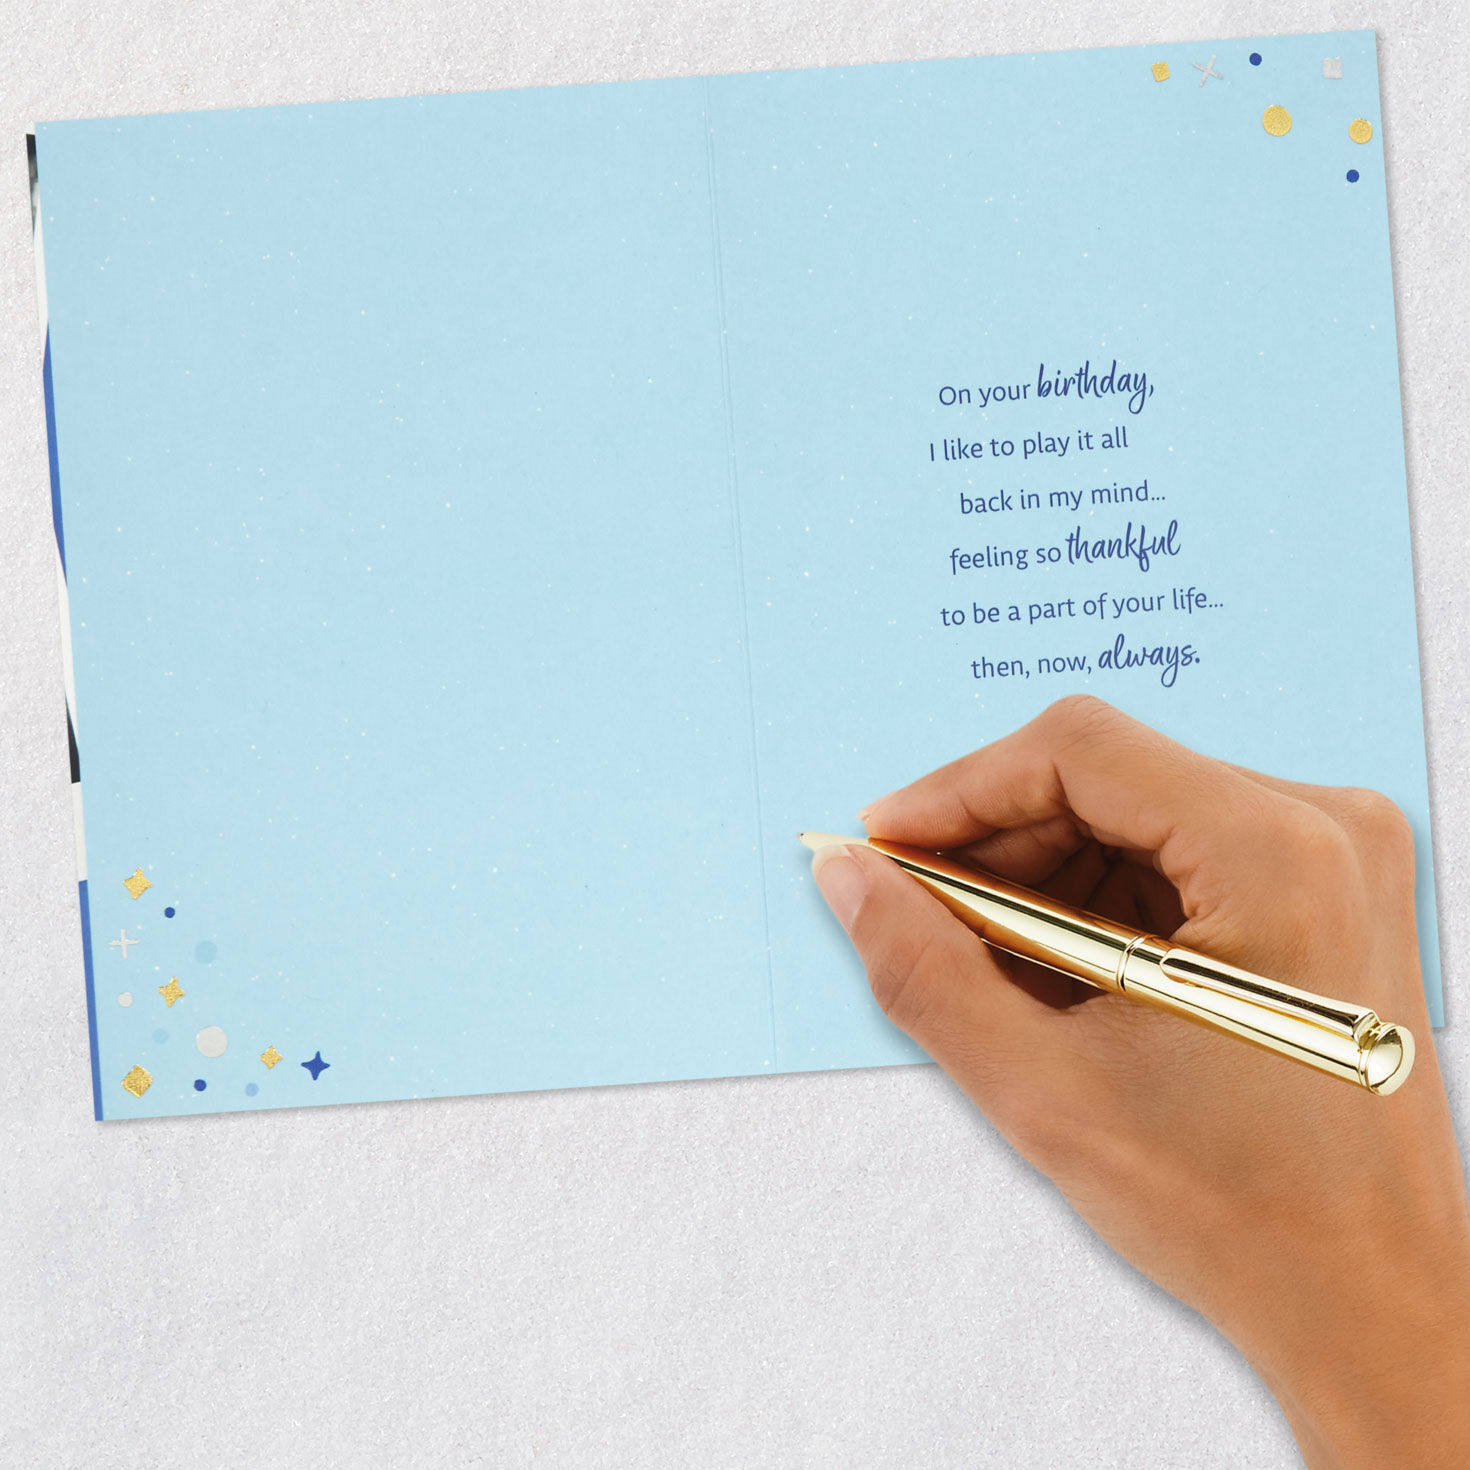 On your birthday,
I like to play it all
back in my mind...
feeling so thankful
to be a part of your life...
then, now, always.